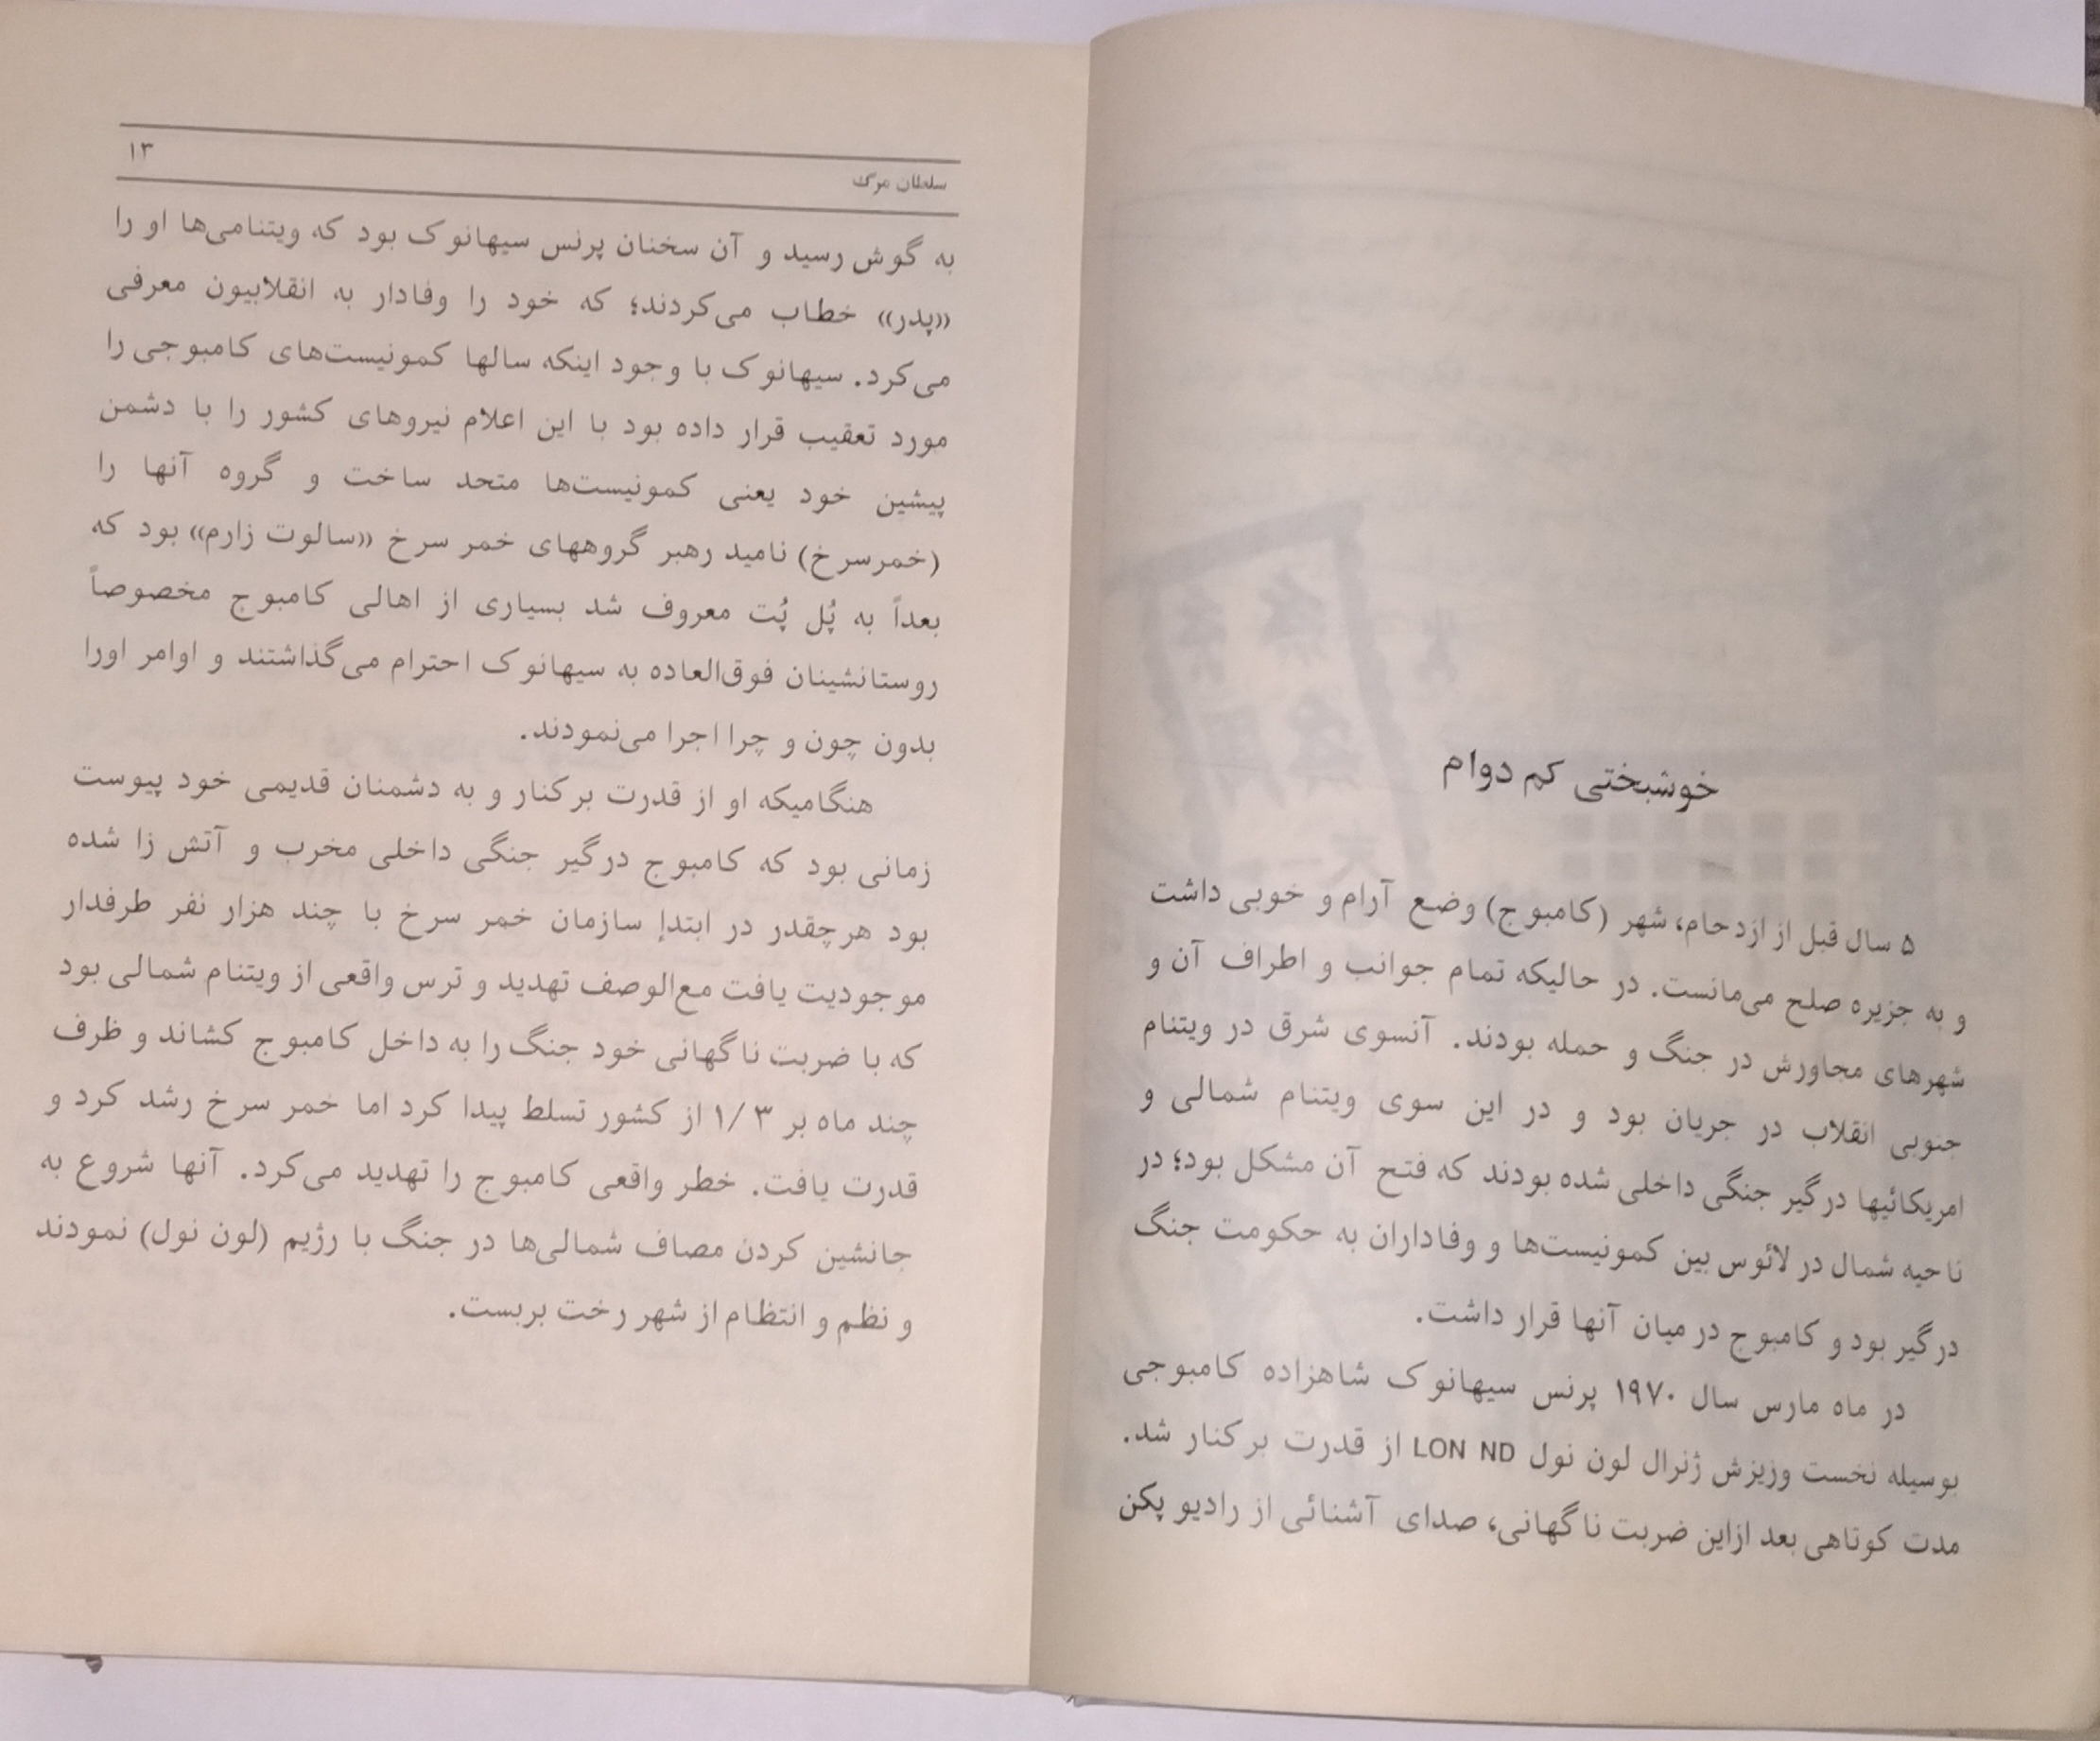 خوشبختی کم دوام
۵ سال قبل از ازدحام، شهر (کامبوج) وضع آرام و خوبی داشت
و به جزیره صلح می‌مانست. در حالیکه تمام جوانب و اطراف آن و
شهرهای مجاورش در جنگ و حمله بودند. آنسوی شرق در ویتنام
جنوبی انقلاب در جریان بود و در این سوی ویتنام شمالی و
امریکائیها درگیر جنگی داخلی شده بودند که فتح آن مشکل بود؛ در
ناحیه شمال در لائوس بین کمونیست‌ها و وفاداران به حکومت جنگ
درگیر بود و کامبوج در میان آنها قرار داشت.
در ماه مارس سال ۱۹۷۰ پرنس سیهانوک شاهزاده کامبوجی
بوسیله نخست وزیزش ژنرال لون نول LON ND از قدرت برکنار شد.
مدت کوتاهی بعد ازاین ضربت ناگهانی، صدای آشنائی از رادیو پکن
سلطان مرگ
۱۳
به گوش رسید و آن سخنان پرنس سیهانوک بود که ویتنامی‌ها او را
«پدر» خطاب می‌کردند؛ که خود را وفادار به انقلابیون معرفی
می‌کرد. سیهانوک با وجود اینکه سالها کمونیست‌های کامبوجی را
مورد تعقیب قرار داده بود با این اعلام نیروهای کشور را با دشمن
پیشین خود یعنی کمونیست‌ها متحد ساخت و گروه آنها را
(خمرسرخ) نامید رهبر گروههای خمر سرخ «سالوت زارم» بود که
بعداً به پُل پُت معروف شد بسیاری از اهالی کامبوج مخصوصاً
روستانشینان فوق‌العاده به سیهانوک احترام می‌گذاشتند و اوامر اورا
بدون چون و چرا اجرا می‌نمودند.
هنگامیکه او از قدرت برکنار و به دشمنان قدیمی خود پیوست
زمانی بود که کامبوج درگیر جنگی داخلی مخرب و آتش زا شده
بود هرچقدر در ابتدإ سازمان خمر سرخ با چند هزار نفر طرفدار
موجودیت یافت مع‌الوصف تهدید و ترس واقعی از ویتنام شمالی بود
که با ضربت ناگهانی خود جنگ را به داخل کامبوج کشاند و ظرف
چند ماه بر ۱/۳ از کشور تسلط پیدا کرد اما خمر سرخ رشد کرد و
قدرت یافت. خطر واقعی کامبوج را تهدید می‌کرد. آنها شروع به
جانشین کردن مصاف شمالی‌ها در جنگ با رژیم (لون نول) نمودند
و نظم و انتظام از شهر رخت بربست.